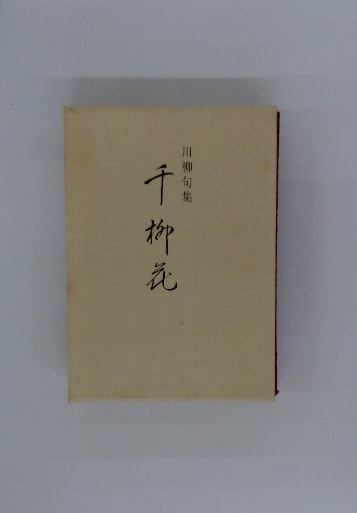 川柳句集
千柳花